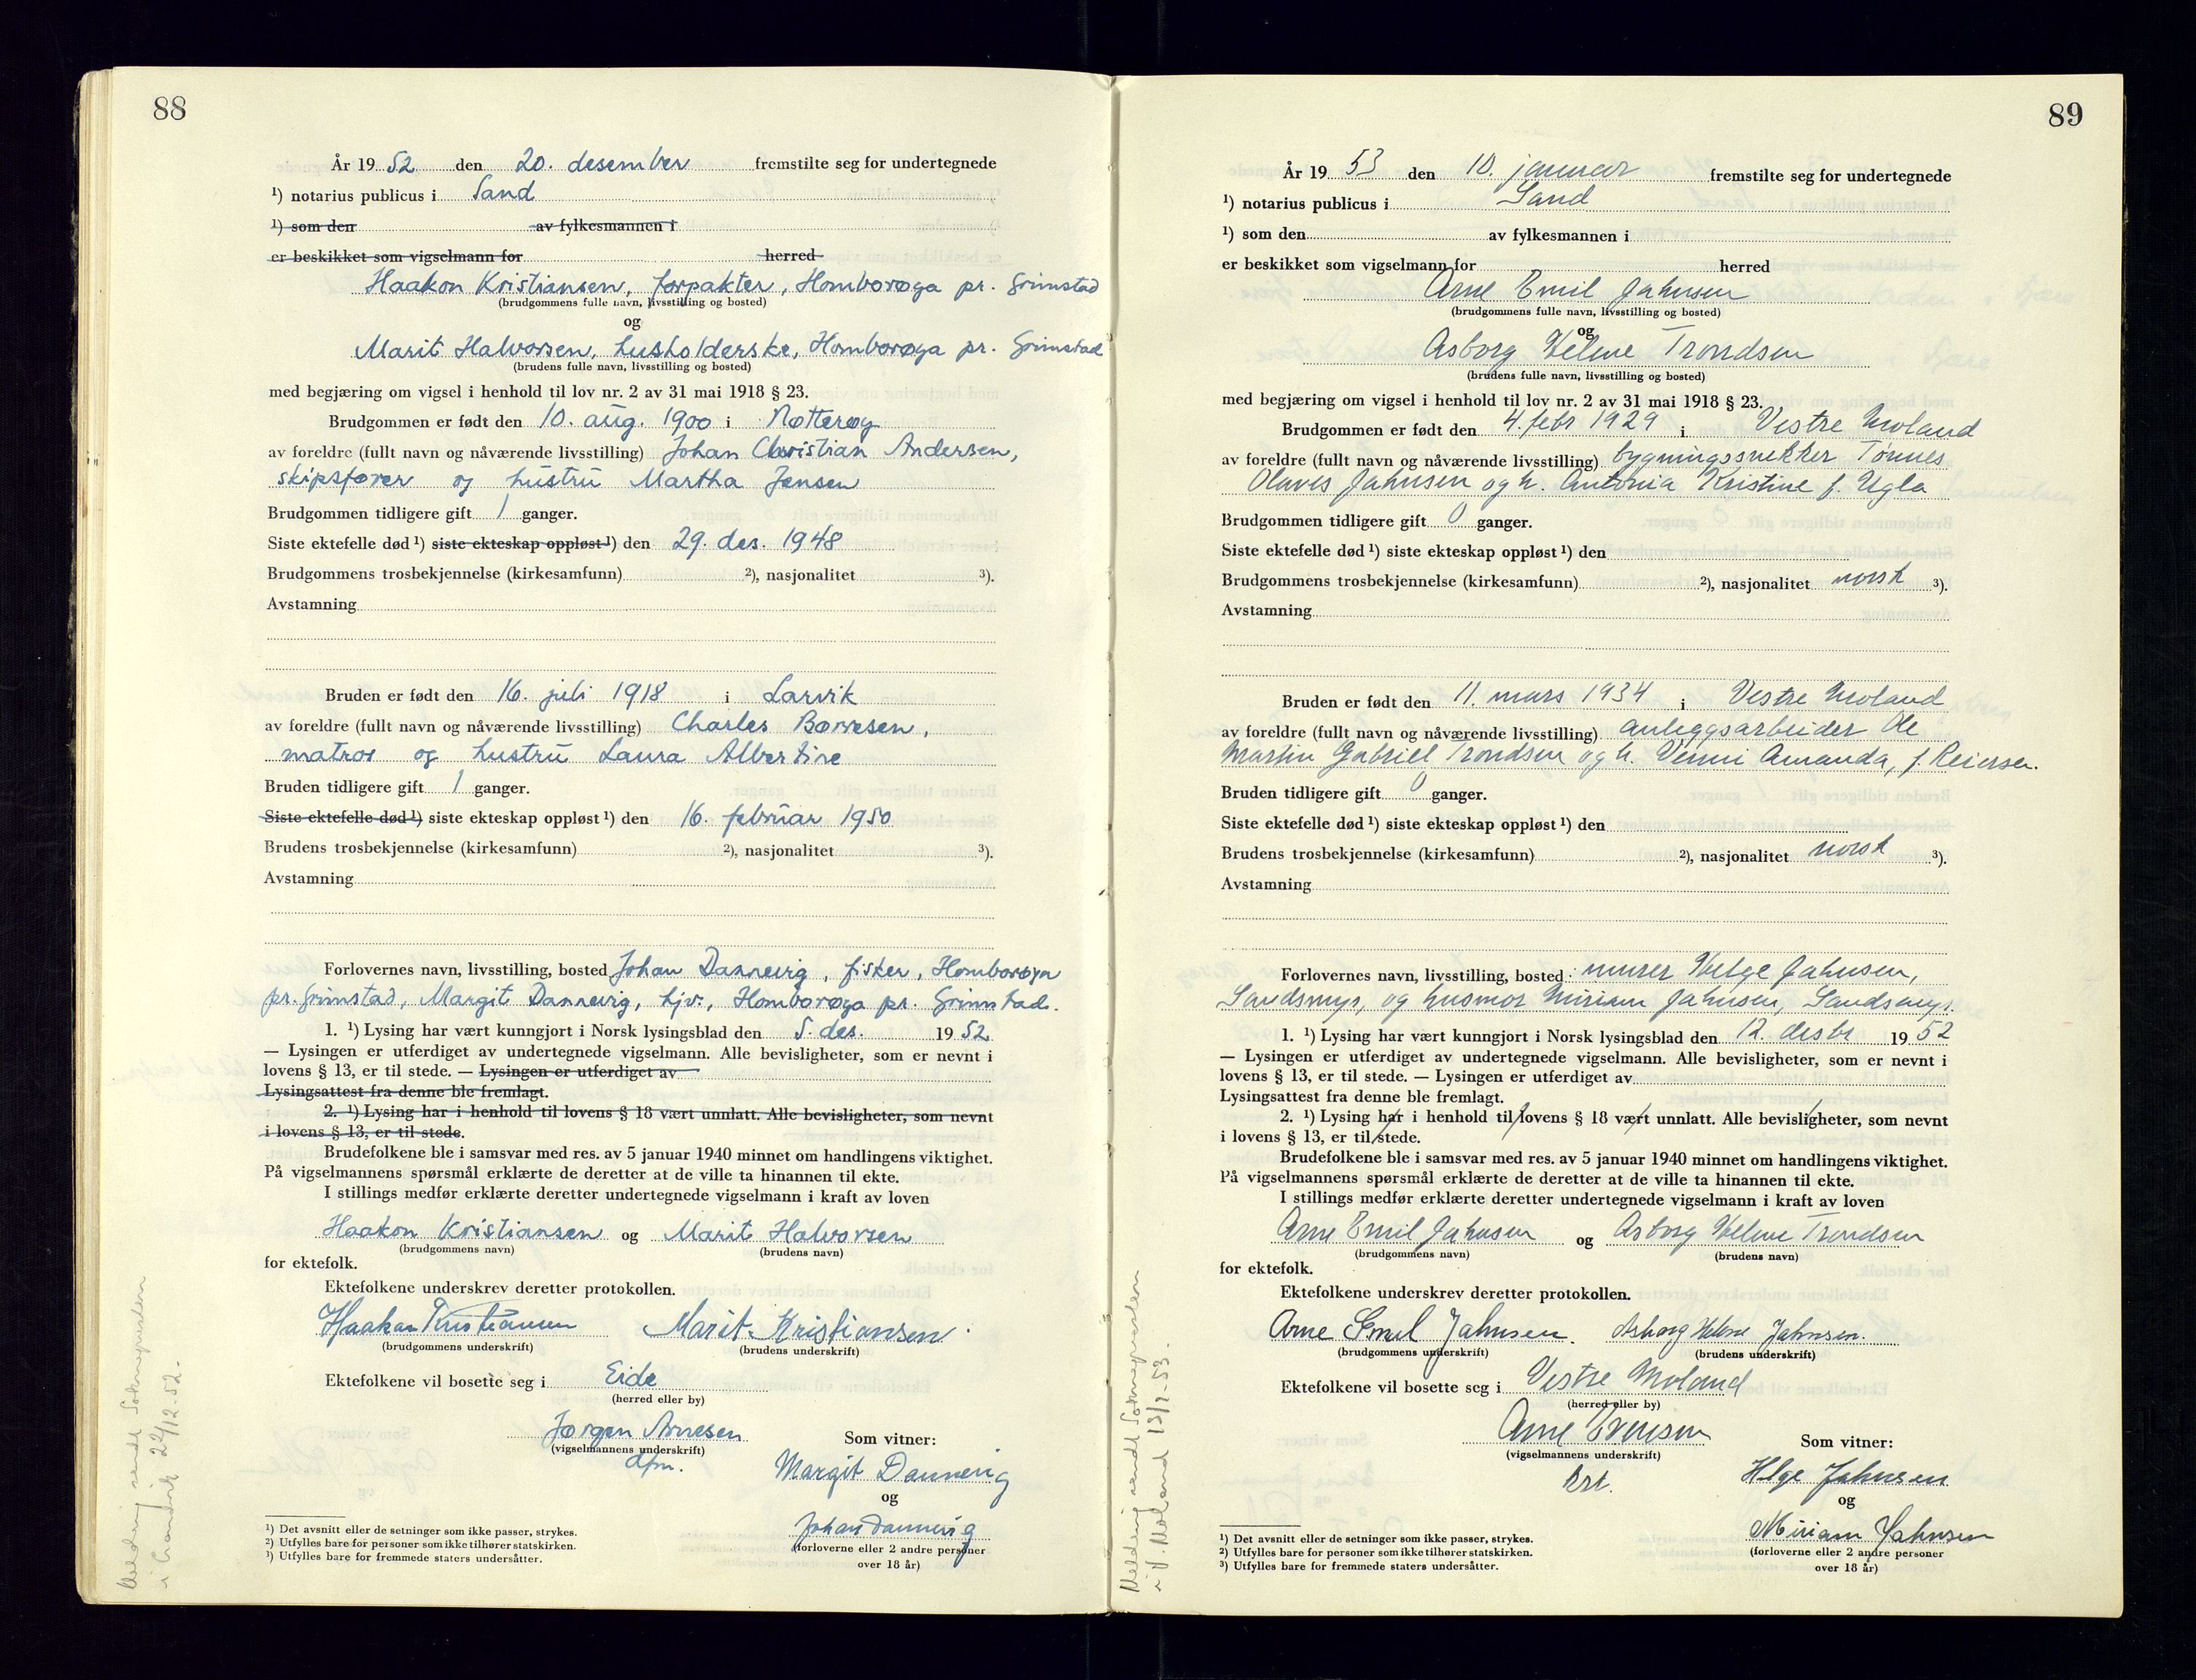 88
År 19 52 den 20. desember fremstilte seg for undertegnede
¹) notarius publicus i Sand
¹) som den av fylkesmannen i
er beskikket som vigselmann for herred
Haakon Kristiansen, forpakter, Homborøya pr. Grimstad
(brudgommens fulle navn, livsstilling og bosted)
og
Marit Halvorsen, husholderske, Homborøya pr. Grimstad
(brudens fulle navn, livsstilling og bosted)
med begjæring om vigsel i henhold til lov nr. 2 av 31 mai 1918 § 23.
Brudgommen er født den 10. aug. 1900 i Nøtterøy
av foreldre (fullt navn og nåværende livsstilling) Johan Christian Andersen,
skipsfører og hustru Martha Jensen
Brudgommen tidligere gift 1 ganger.
Siste ektefelle død ¹) siste ekteskap oppløst ¹) den 29. des. 1948
Brudgommens trosbekjennelse (kirkesamfunn) ²), nasjonalitet ³).
Avstamning
Bruden er født den 16. juli 1918 i Larvik
av foreldre (fullt navn og nåværende livsstilling) Charles Børresen,
matros og hustru Laura Albertine
Bruden tidligere gift 1 ganger.
Siste ektefelle død ¹) siste ekteskap oppløst ¹) den 16. februar 1950
Brudens trosbekjennelse (kirkesamfunn) ²), nasjonalitet ³).
Avstamning
Forlovernes navn, livsstilling, bosted Johan Dannevig, fisker, Homborøya
pr. Grimstad, Margit Dannevig, hjv., Homborøya pr. Grimstad.
1. ¹) Lysing har vært kunngjort i Norsk lysingsblad den 5. des. 19 52
— Lysingen er utferdiget av undertegnede vigselmann. Alle bevisligheter, som er nevnt i
lovens § 13, er til stede. — Lysingen er utferdiget av
Lysingsattest fra denne ble fremlagt.
2. ¹) Lysing har i henhold til lovens § 18 vært unnlatt. Alle bevisligheter, som nevnt
i lovens § 13, er til stede.
Brudefolkene ble i samsvar med res. av 5 januar 1940 minnet om handlingens viktighet.
På vigselmannens spørsmål erklærte de deretter at de ville ta hinannen til ekte.
I stillings medfør erklærte deretter undertegnede vigselmann i kraft av loven
Haakon Kristiansen og Marit Halvorsen
(brudgommens navn) (brudens navn)
for ektefolk.
Ektefolkene underskrev deretter protokollen.
Haakon Kristiansen Marit Kristiansen.
(brudgommens underskrift) (brudens underskrift)
Ektefolkene vil bosette seg i Eide
(herred eller by)
Jørgen Arnesen
(vigselmannens underskrift) Som vitner:
dfm.
Margit Dannevig
og
Johan Dannevig
(forloverne eller 2 andre personer
over 18 år)
¹) Det avsnitt eller de setninger som ikke passer, strykes.
²) Utfylles bare for personer som ikke tilhører statskirken.
³) Utfylles bare for fremmede staters undersåtter.
Melding sendt Soknepresten
i
89
År 19 53 den 10. januar fremstilte seg for undertegnede
¹) notarius publicus i Sand
¹) som den av fylkesmannen i
er beskikket som vigselmann for herred
Arne Emil Jahnsen
(brudgommens fulle navn, livsstilling og bosted)
og
Asborg Helene Trondsen
(brudens fulle navn, livsstilling og bosted)
med begjæring om vigsel i henhold til lov nr. 2 av 31 mai 1918 § 23.
Brudgommen er født den 4. febr 1929 i Vestre Moland
av foreldre (fullt navn og nåværende livsstilling) bygningssnekker Tønnes
Olaves Jahnsen og h. Antonia Kristine f. Ugla
Brudgommen tidligere gift 0 ganger.
Siste ektefelle død ¹) siste ekteskap oppløst ¹) den
Brudgommens trosbekjennelse (kirkesamfunn) ²), nasjonalitet norsk ³).
Avstamning
Bruden er født den 11. mars 1934 i Vestre Moland
av foreldre (fullt navn og nåværende livsstilling) anleggsarbeider Ole
Martin Gabriel Trondsen og h. Venni Amanda, f. Reiersen.
Bruden tidligere gift 0 ganger.
Siste ektefelle død ¹) siste ekteskap oppløst ¹) den
Brudens trosbekjennelse (kirkesamfunn) ²), nasjonalitet norsk ³).
Avstamning
Forlovernes navn, livsstilling, bosted: murer Helge Jahnsen,
Sandsmyr, og husmor Miriam Jahnsen, Sandsmyr.
1. ¹) Lysing har vært kunngjort i Norsk lysingsblad den 12. desbr 19 52
— Lysingen er utferdiget av undertegnede vigselmann. Alle bevisligheter, som er nevnt i
lovens § 13, er til stede. — Lysingen er utferdiget av
Lysingsattest fra denne ble fremlagt.
2. ¹) Lysing har i henhold til lovens § 18 vært unnlatt. Alle bevisligheter, som nevnt
i lovens § 13, er til stede.
Brudefolkene ble i samsvar med res. av 5 januar 1940 minnet om handlingens viktighet.
På vigselmannens spørsmål erklærte de deretter at de ville ta hinannen til ekte.
I stillings medfør erklærte deretter undertegnede vigselmann i kraft av loven
Arne Emil Jahnsen og Asborg Helene Trondsen
(brudgommens navn) (brudens navn)
for ektefolk.
Ektefolkene underskrev deretter protokollen.
Arne Emil Jahnsen. Asborg Helene Jahnsen.
(brudgommens underskrift) (brudens underskrift)
Ektefolkene vil bosette seg i Vestre Moland
(herred eller by)
Arne Evensen
(vigselmannens underskrift) Som vitner:
Helge Jahnsen
og
Miriam Jahnsen
(forloverne eller 2 andre personer
over 18 år)
¹) Det avsnitt eller de setninger som ikke passer, strykes.
²) Utfylles bare for personer som ikke tilhører statskirken.
³) Utfylles bare for fremmede staters undersåtter.
Melding sendt Soknepresten
i V. Moland 13/1-53.